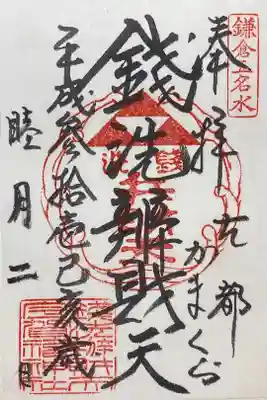 鎌倉五名水
奉拝
古都
かまくら
銭洗辨財天
平成参拾壱己亥歳
睦月二日